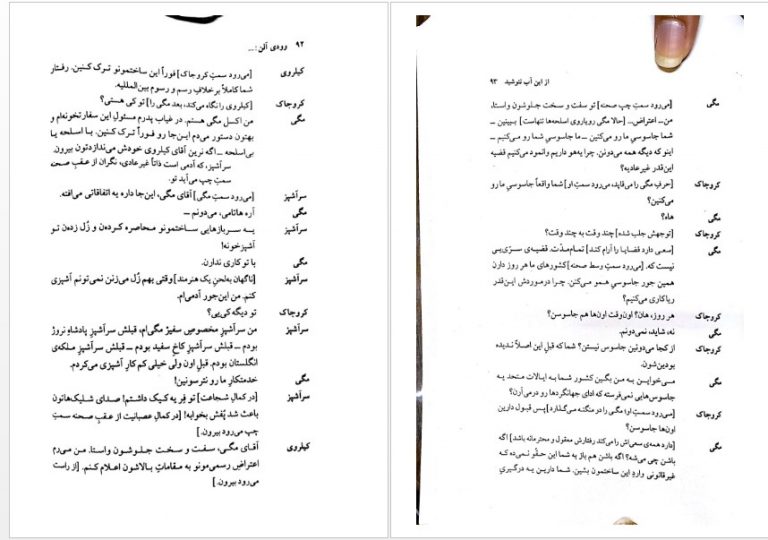 ۹۲ وودی آلن: ...
کیلروی [می‌رود سمتِ کروجاک] فوراً این ساختمونو ترک کنین. رفتار
شما کاملاً برخلافِ رسم و رسومِ بین‌المللیه.
کروجاک [کیلروی را نگاه می‌کند، بعد مگی را] تو کی هستی؟
مگی من اکسل مگی هستم. در غیاب پدرم مسئولِ این سفارتخونه‌ام و
بهتون دستور می‌دم این‌جا رو فوراً ترک کنین. با اسلحه یا
بی‌اسلحه ــ اگه نرین آقای کیلروی خودش می‌ندازدتون بیرون.
سرآشپز، که آدمی است ذاتاً غیرعادی، نگران از عقبِ صحنه
سمتِ چپ می‌آید تو.
سرآشپز [می‌رود سمتِ مگی] آقای مگی، این‌جا داره یه اتفاقاتی می‌افته.
مگی آره هاتامی، می‌دونم ــ
سرآشپز یه سربازهایی ساختمونو محاصره کرده‌ن و زُل زده‌ن تو
آشپزخونه!
مگی با تو کاری ندارن.
سرآشپز [ناگهان به‌لحنِ یک هنرمند] وقتی بهم زُل می‌زنن نمی‌تونم آشپزی
کنم. من این‌جور آدمی‌ام.
کروجاک تو دیگه کی‌یی؟
سرآشپز من سرآشپزِ مخصوصِ سفیرْ مگی‌ام، قبلش سرآشپزِ پادشاهِ نروژ
بودم ــ قبلش سرآشپزِ کاخِ سفید بودم ــ قبلش سرآشپزِ ملکه‌ی
انگلستان بودم. قبلِ اون ولی خیلی کم کارِ آشپزی می‌کردم.
مگی خدمتکارِ ما رو نترسونین!
سرآشپز [در کمالِ شجاعت] تو فِر یه کیک داشتم! صدای شلیک‌هاتون
باعث شد پُفش بخوابه! [در کمالِ عصبانیت از عقبِ صحنه سمتِ
چپ می‌رود بیرون.]
کیلروی آقای مگی، سفت و سخت جلوشون واستا. من می‌رم
اعتراضِ رسمی‌مونو به مقاماتِ بالاشون اعلام کنم. [از راست
می‌رود بیرون.]
از این آب ننوشید ۹۳
مگی [می‌رود سمتِ چپِ صحنه] تو سفت و سخت جلوشون واستا.
من... اعتراض... [حالا مگی رویاروی اسلحه‌ها تنهاست] ببینین ــ
شما جاسوسیِ ما رو می‌کنین ــ ما جاسوسیِ شما رو می‌کنیم ــ
اینو که دیگه همه می‌دونن. چرا یه‌هو داریم وانمود می‌کنیم قضیه
این‌قدر غیرعادیه؟
کروجاک [حرفِ مگی را می‌قاپد، می‌رود سمتِ او] شما واقعاً جاسوسیِ ما رو
می‌کنین؟
مگی هاه؟
کروجاک [توجهش جلب شده] چند وقت به چند وقت؟
مگی [سعی دارد قضایا را آرام کند] تمام‌مدّت. قضیه‌ی سرّی‌یی
نیست که. [می‌رود سمتِ وسطِ صحنه] کشورهای ما هر روز دارن
همین جور جاسوسیِ همو می‌کنن. چرا درموردش این‌قدر
ریاکاری می‌کنیم؟
کروجاک هر روز، هان؟ اون‌وقت اون‌ها هم جاسوسن؟
مگی نه، شاید، نمی‌دونم.
کروجاک از کجا می‌دونین جاسوس نیستن؟ شما که قبلِ این اصلاً ندیده
بودین‌شون.
مگی می‌خواین به من بگین کشور شما به ایالات متحد یه
جاسوس‌هایی نمی‌فرسته که ادای جهانگردها رو درمی‌آرن؟
کروجاک [می‌رود سمتِ او؛ مگی را در منگنه می‌گذارد] پس قبول دارین
اون‌ها جاسوسن؟
مگی [دارد همه‌ی سعی‌اش را می‌کند رفتارش معقول و محترمانه باشد] اگه
باشن چی می‌شه؟ اگه باشن هم باز به شما این حقّو نمی‌ده که
غیرقانونی واردِ این ساختمون بشین. شما دارین یه درگیریِ